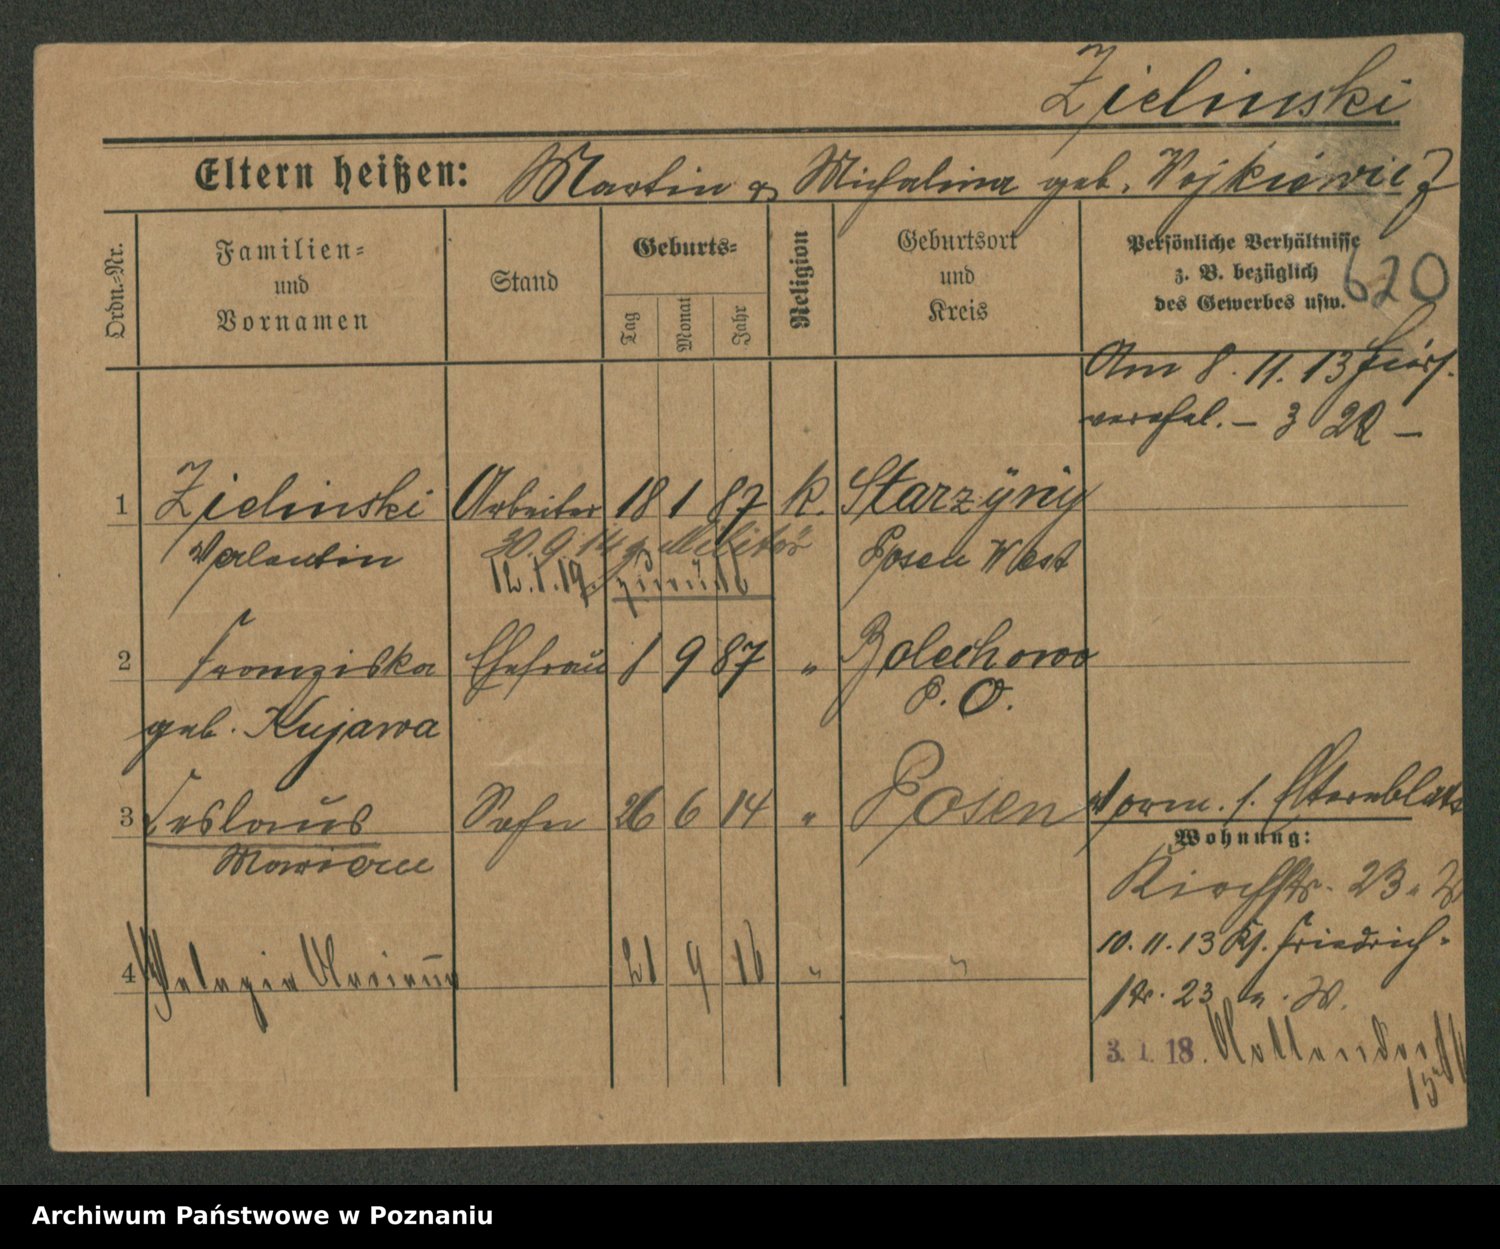 Zielinski
Eltern heißen: Martin & Michalina geb. Wojkiewicz
Ordn.-Nr.
Familien-
und
Vornamen
Stand
Geburts-
Tag
Monat
Jahr
Religion
Geburtsort
und
Kreis
Persönliche Verhältnisse
z. B. bezüglich
des Gewerbes usw.
620
Am 8. 11. 13 hier
verehel. –
1 Zielinski Arbeiter 18 1 87 k. Starzÿny
Valentin Posen West
30. 9. 14 z. Militär
12. 1. 19. zurück
2 Franziska Ehefrau 1 9 87 " Bolechowo
geb. Kujawa P. O.
3 Ceslaus Sohn 26 6 14 " Posen
Marian
Vorm. s. Elternblatt
4 Pelagia 21 9 16 " "
Wohnung:
Kirchstr. 23
10. 11. 13 Friedrich-
str. 23
3. 1. 18.
15
Archiwum Państwowe w Poznaniu